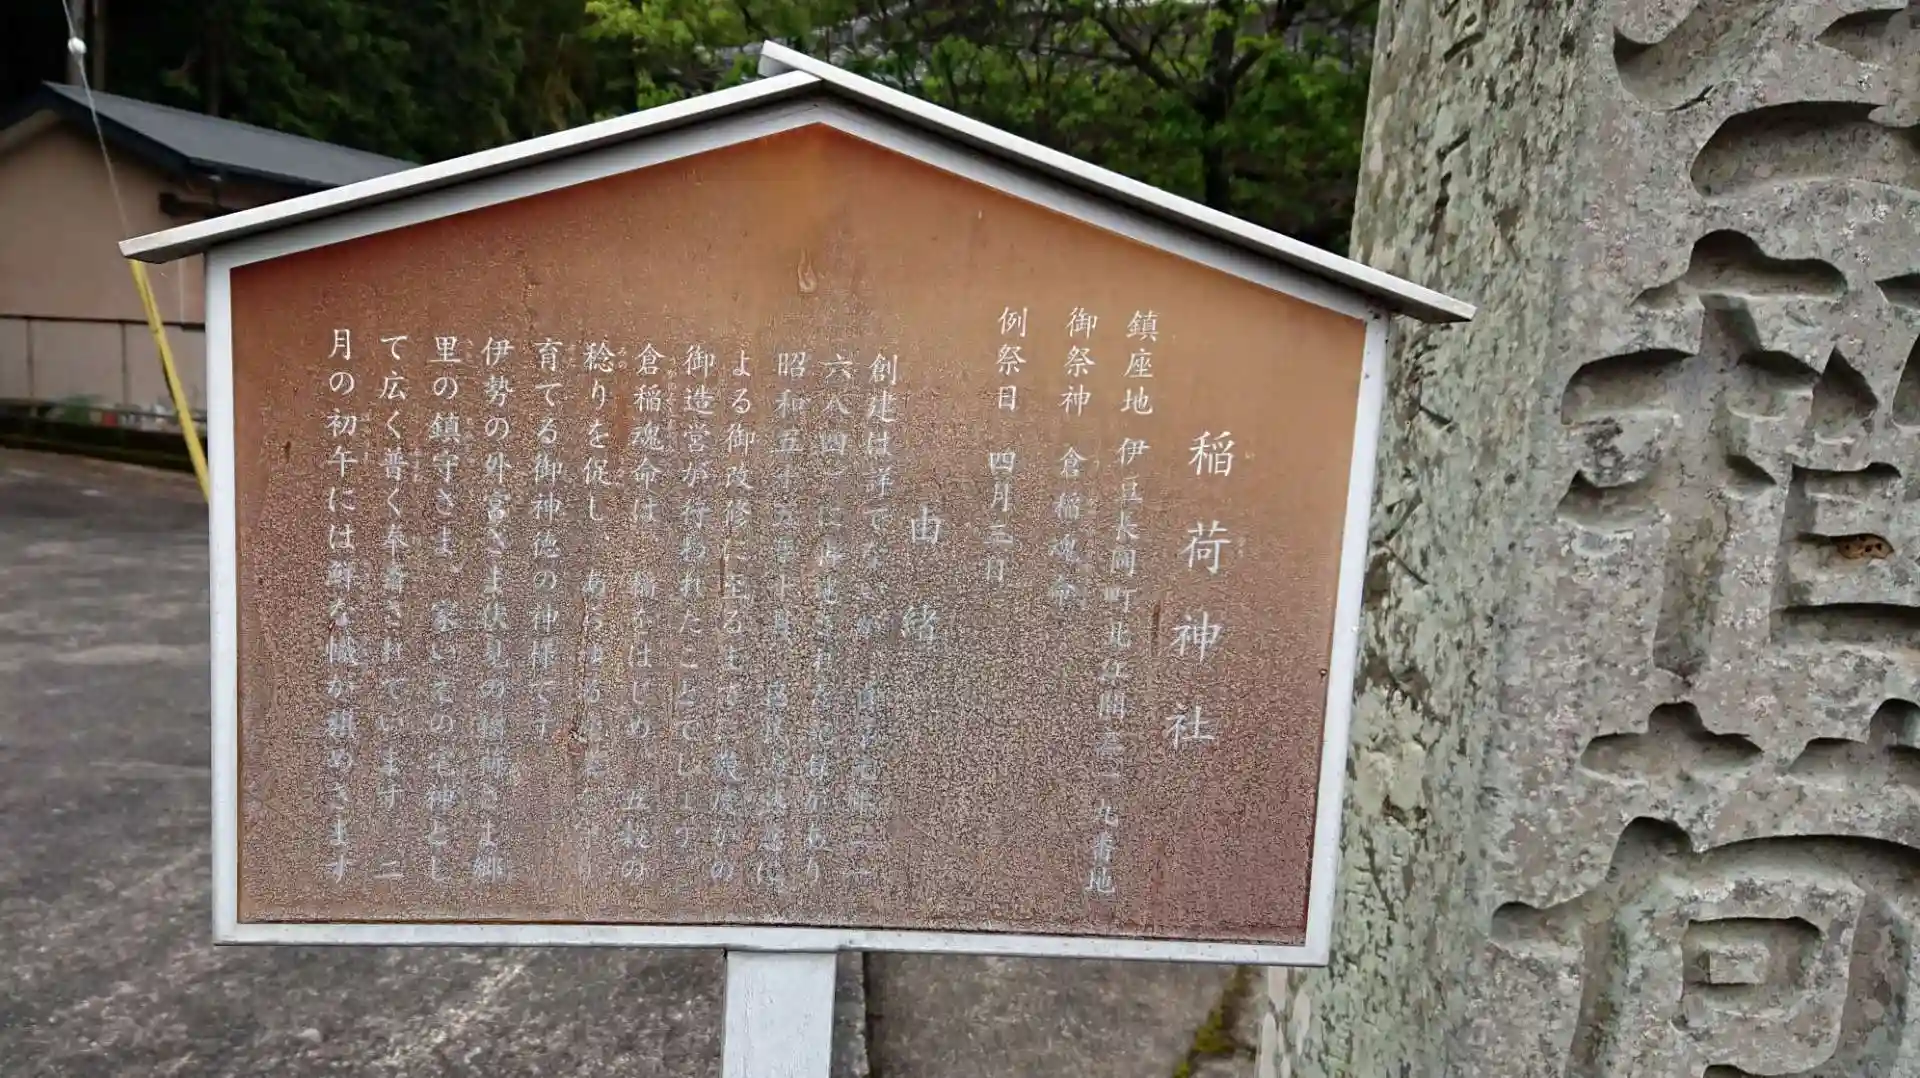 稲荷神社
鎮座地 伊豆長岡町北江間三一九番地
御祭神 倉稲魂命
例祭日 四月三日
由緒
創建は詳でないが、貞享元年二(一
六八四)に再建された記録があり
昭和五十五年十月、
よる御改修に至るまでに幾度かの
御造営が行われたことでしょう。
倉稲魂命は、稲をはじめ、五穀の
稔りを促し、あらゆる
育てる御神徳の神様です
伊勢の外宮さま伏見の稲荷さま郷
里の鎮守さま、家いえの宅神とし
て広く普く奉斎されています 二
月の初午には鮮な幟が頼めきます
稲荷